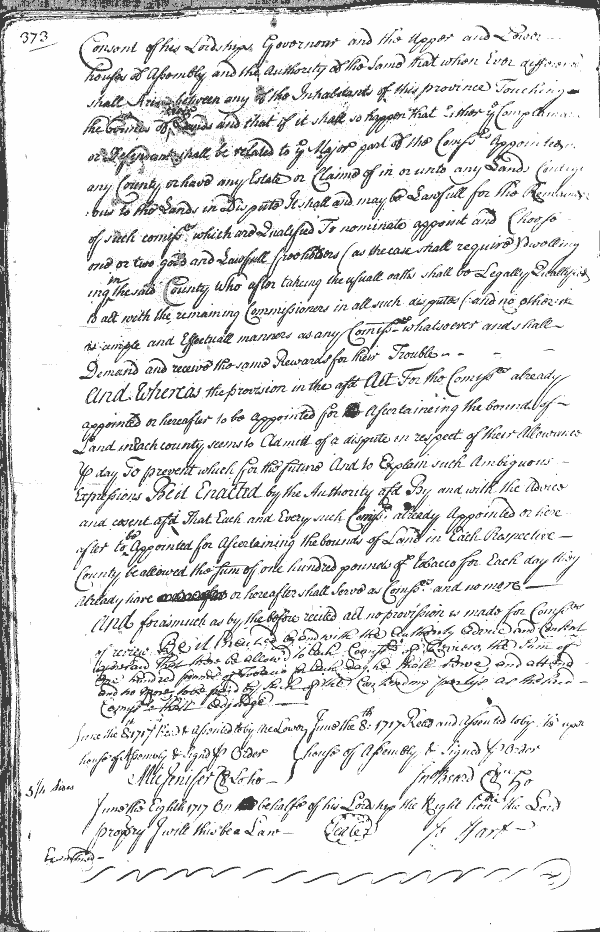 373
Consent of his Lordships Governour and the Upper and Lower
houses of Assembly and the Authority of the Same that when Ever differen
shall Arise between any of the Inhabitants of this province Touching
the bounds of Lands and that if it shall so happen that Either ye Complainan
or Defendant shall be related to ye Major part of the Comssrs Appointed
any County or have any Estate or Claime of in or unto any Lands Contigu
ous to the Lands in Dispute It shall and may be Lawfull for the Remainder
of such comissrs which are Qualified To nominate appoint and Choose
one or two good and Lawfull freeholders (as the case shall require) dwelling
ing in the said County who after takeing the usuall oaths shall be Legally Quallifyed
to act with the remaining Commissioners in all such disputes (and no other) in
as ample and Effectuall manners as any Comissrs whatsoever and shall
Demand and receive the same Rewards for their Trouble
And Whereas the provision in the afd Act For the Comissrs already
appointed or hereafter to be Appointed for Ascertaineing the bounds of
Land in Each county seems to Admitt of a dispute in respect of their Allowance
P day To prevent which for the future And to Explain such Ambiguous
Expressions Be it Enacted by the Authority afd By and with the Advice
and consent afd That Each and Every such Comssr already Appointed or here
after to be Appointed for Ascertaining the bounds of Land in Each Respective
County be allowed the sum of one hundred pounds of tobacco for Each day they
already have or hereafter shall Serve as Comssr and no more
And forasmuch as by the before recited act no provision is made for Comssrs
of review Be it Enacted by and with the Authority advice and Consent
aforesaid That there be allowed to Each Comssr of Review the Sum of
one hundred pounds of Tobacco for Each day he shall Serve and attend
and no more to be paid by such of the Contending partys as the said
Comssrs shall adjudge
June the 8th 1717 Read & Assented to by the Lower
house of Assembly & Signd P Order
MJenifer Cl Lo ho
June the 8th 1717 Read and Assented to by the upr
house of Assembly & Signed P Order
Jn Beard Cl up ho
June the Eighth 1717 On behalfe of his Lordship the Right honble the Lord
propry I will this be a Law
Sealed
Jo Hart